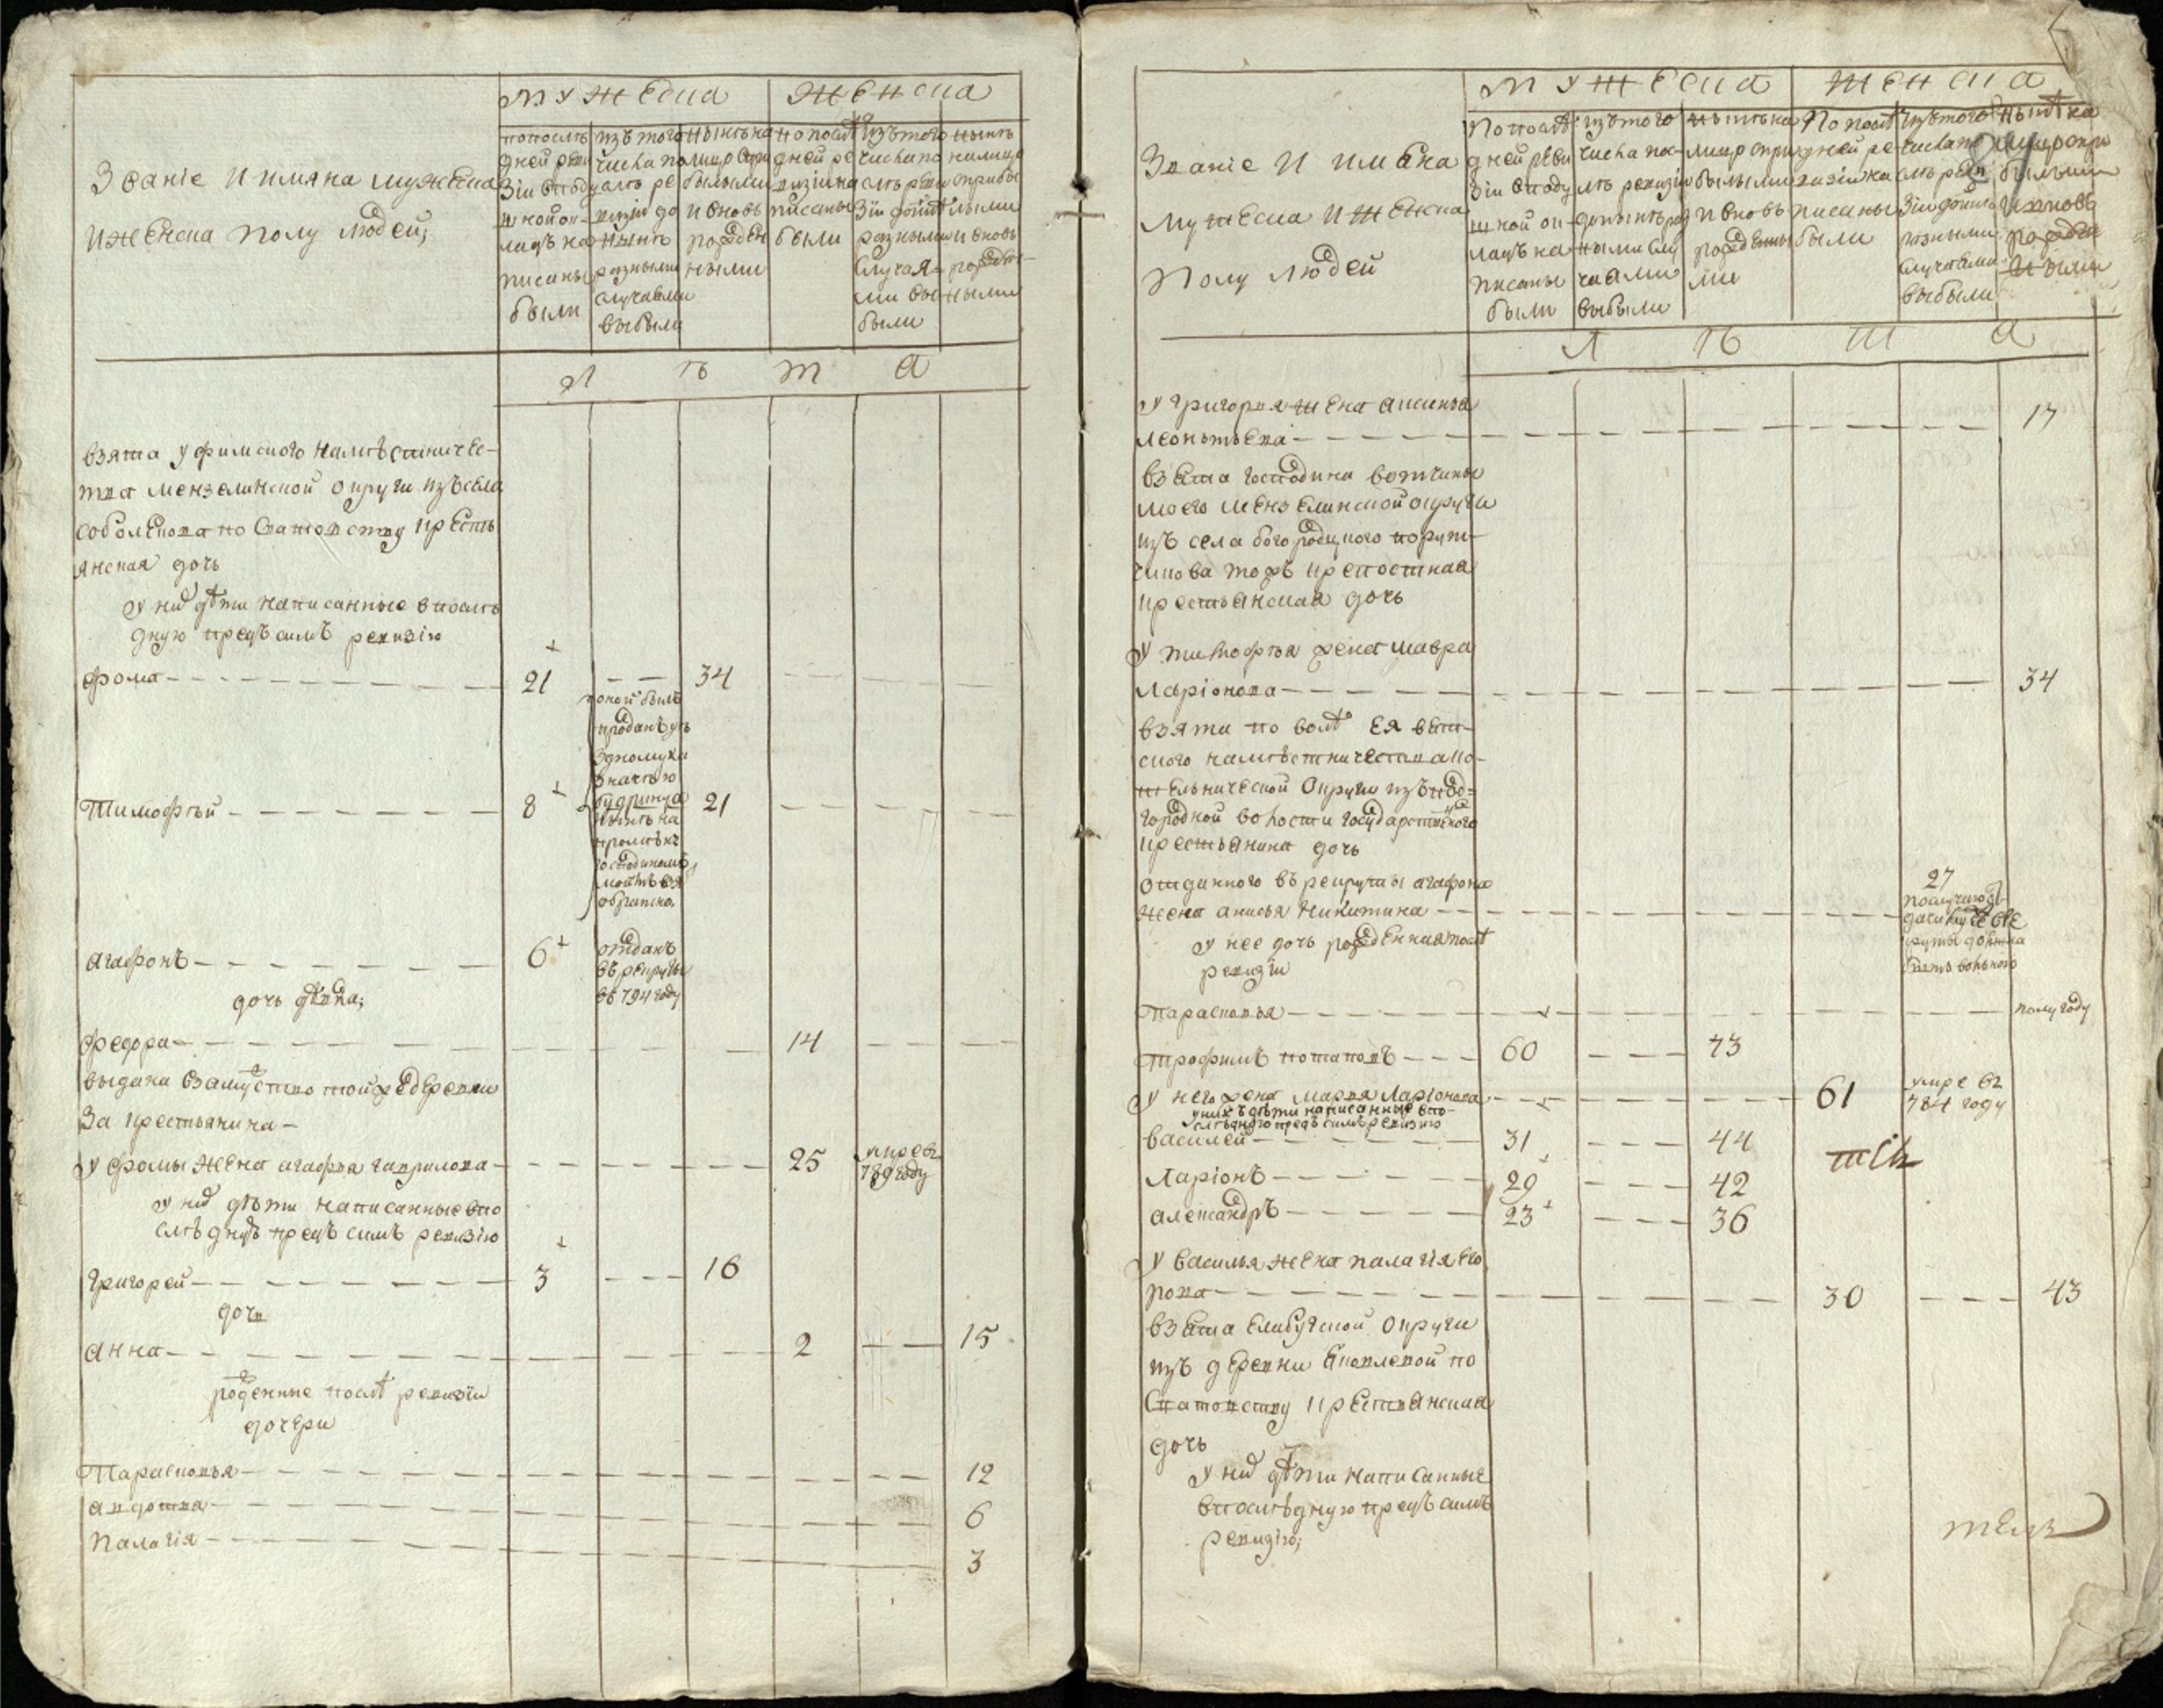 мужеска
женска
Званіе и имяна мужеска
и женска полу людей;
по послѣ
дней реви
зіи въ поду
шной ок-
ладъ на
писаны
были
изъ того
числа по
слѣ ре
визіи до
нынѣ
разными
случаями
выбыли
нынѣ на
лицо с при
былыми
и вновь
рожден
ными
по послѣ
дней ре
визіи на
писаны
были
изъ того
числа по
слѣ реви
зіи до нынѣ
разными
случая-
ми вы
были
нынѣ
на лицо
с прибы
лыми
и вновь
рожден-
ными
лѣта
взята уфимского намѣстничес-
тва мензелинской округи изъ села
соболекова по сватовству кресть
янская дочь
у них дѣти написанные в послѣ
днюю предъ симъ ревизію
фома 21 34
оной былъ
проданъ
нынѣ на
обратно.
Тимофѣй 8 21
агафонъ 6
отданъ
въ рекруты
въ 794 году
дочь дѣвка;
федора 14
выдана в замужство той ж деревни
за крестьянина
у фомы жена агафья гаврилова 25 умре въ
789 году
у них дѣти написанные в по
слѣднюю предъ симъ ревизію
григорей 3 16
дочь
анна 2 15
рожденные послѣ ревизіи
дочери
Парасковья 12
авдотья 6
Палагія 3
мужеска
женска
Званіе и имяна
мужеска и женска
полу людей
По послѣ
дней реви
зіи в поду
шной ок
ладъ на
писаны
были
изъ того
числа по-
слѣ ревизіи
до нынѣ раз
ными слу
чаями
выбыли
нынѣ на
лицо с при
былыми
и вновь
рожденны
ми
По послѣ
дней ре
визіи на
писаны
были
изъ того
числа по
слѣ реви
зіи до нынѣ
разными
случаями
выбыли
нынѣ на
лицо с при
былыми
и вновь
рожден
ными
лѣта
у григорья жена аксинья
леонтьева 17
взята господина вотчины
моего мензелинской округи
изъ села богородицкого
тожъ крепостная
крестьянская дочь
у тимофѣя жена мавра
Ларіонова 34
взята по волѣ ея вят-
ского намѣстничества ко-
тельнической округи изъ под-
городной волости государственного
крестьянина дочь
отданного въ рекруты агафона
жена анисья никитина 27
у нее дочь рожденная послѣ
ревизіи
Парасковья полугоду
трофимъ потаповъ 60 73
у него жена марья Ларіонова 61 умре въ
784 году
у них дѣти написанные в по-
слѣднюю предъ симъ ревизію
василей 31 44
Ларіонъ 29 42
александръ 23 36
у василья жена палагія его
рова 30 43
взята елабужской округи
изъ деревни яковлевой по
сватовству крестьянская
дочь
у них дѣти написанные
в послѣднюю предъ симъ
ревизію;